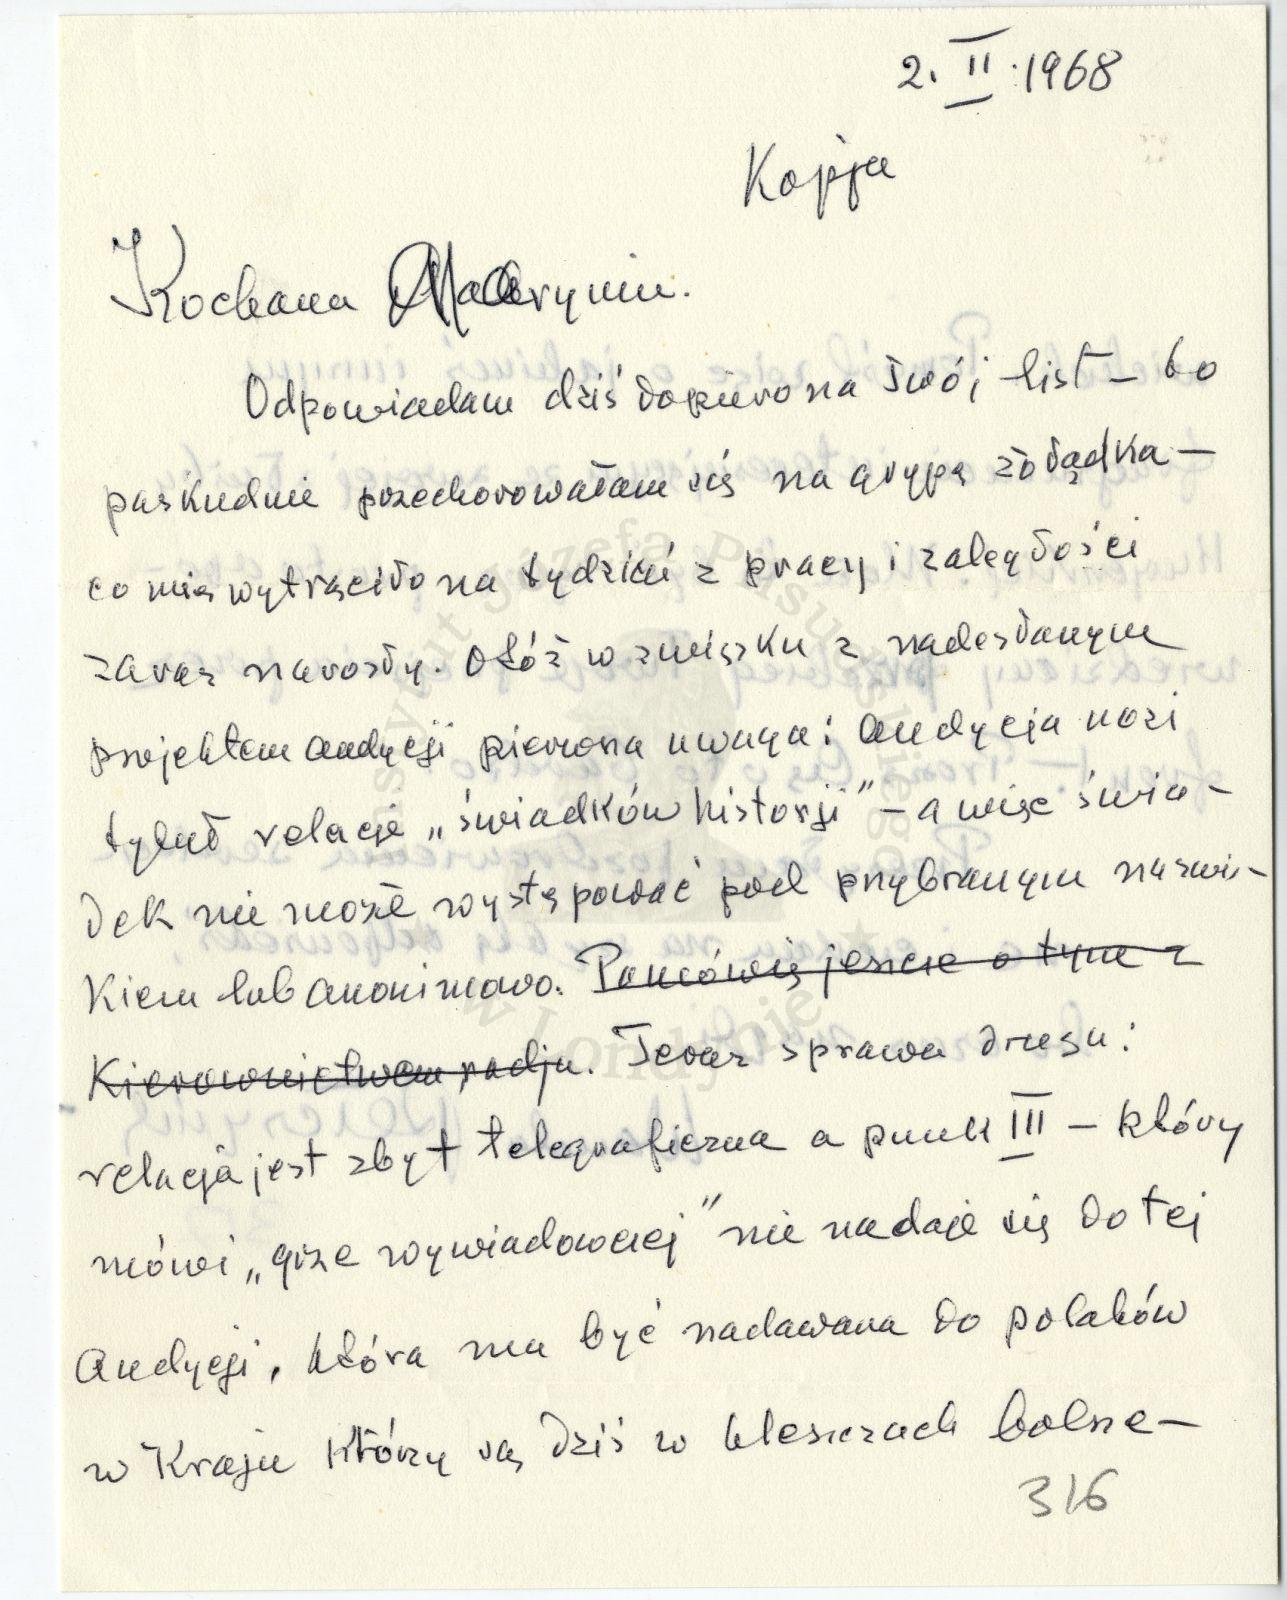 2. II. 1968
Kopja
Kochana
Odpowiadam dziś dopiero na Twój list – bo
paskudnie przechorowałam się na grypę żołądka –
co mię wytrąciło na tydzień z pracy i zaległości
zaraz narosły. Otóż w związku z nadesłanym
projektem audycji pierwsza uwaga: audycja nosi
tytuł relacje „świadków historji” – a więc świa-
dek nie może występować pod przybranym nazwis-
kiem lub anonimowo. Pomówię jeszcze o tym z
Kierownictwem radja. Teraz sprawa druga:
relacja jest zbyt telegraficzna a punkt III – który
mówi „grze wywiadowczej” nie nadaje się do tej
audycji, która ma być nadawana do polaków
w Kraju którzy są dziś w kleszczach bolsze-
316
Instytut Józefa Piłsudskiego
w Londynie